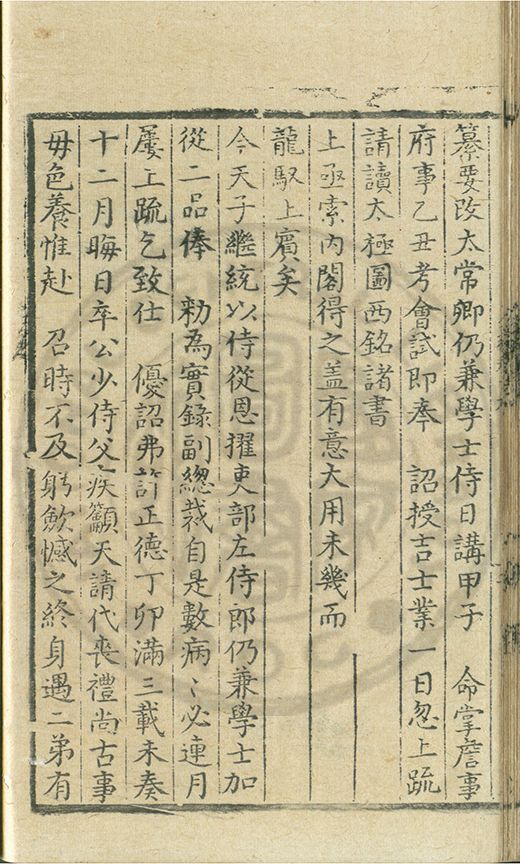 纂要改太常卿仍兼學士侍日講甲子　命掌詹事
府事乙丑考會試即奉　詔授吉士業一日忽上疏
請讀太極圖西銘諸書
上亟索內閣得之盖有意大用未幾而
龍馭上賓矣
今天子繼統以侍從恩擢吏部左侍郎仍兼學士加
從二品俸　勑為實錄副總裁自是數病〻必連月
屢上疏乞致仕　優詔弗許正德丁卯滿三載未奏
十二月晦日卒公少侍父疾籲天請代喪禮尚古事
毋色養惟赴　召時不及躬歛憾之終身遇二弟有